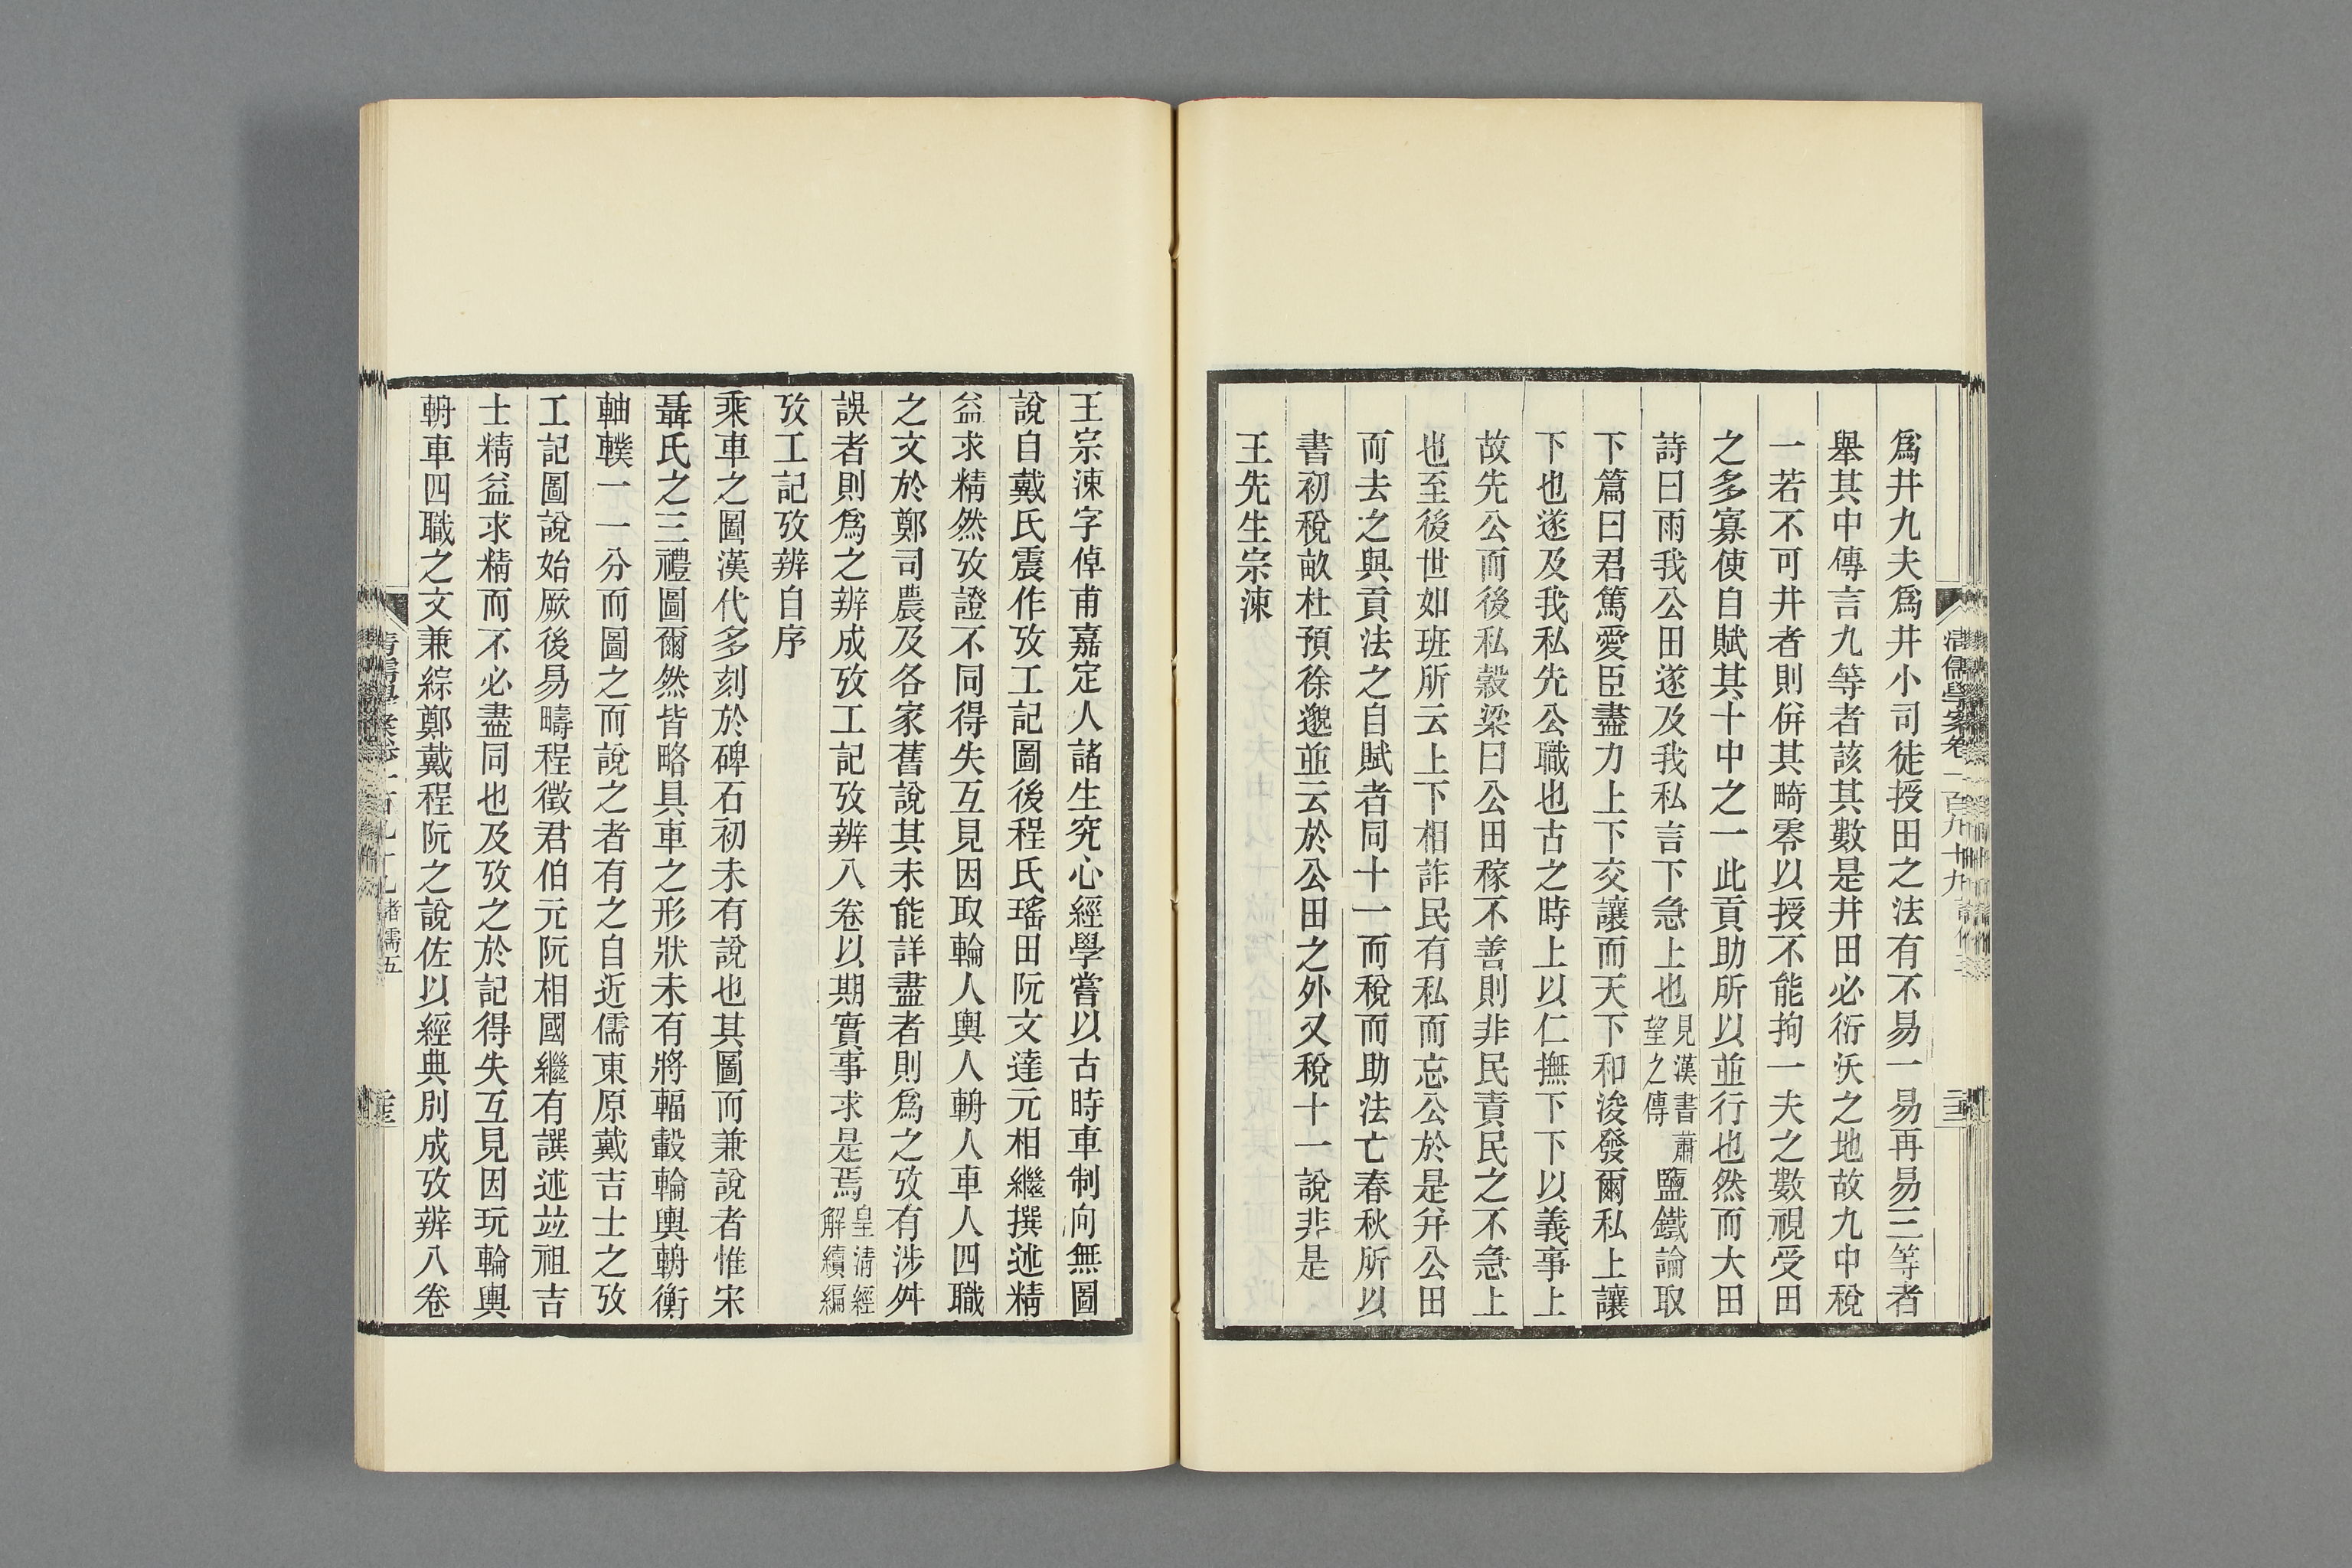 爲井九夫爲井小司徒授田之法有不易一易再易三等者
舉其中傳言九等者該其數是井田必衍沃之地故九中稅
一若不可井者則倂其畸零以授不能拘一夫之數視受田
之多寡使自賦其十中之一此貢助所以並行也然而大田
詩曰雨我公田遂及我私言下急上也見漢書蕭望之傳鹽鐵論取
下篇曰君篤愛臣盡力上下交讓而天下和浚發爾私上讓
下也遂及我私先公職也古之時上以仁撫下下以義事上
故先公而後私穀梁曰公田稼不善則非民責民之不急上
也至後世如班所云上下相詐民有私而忘公於是幷公田
而去之與貢法之自賦者同十一而稅而助法亡春秋所以
書初稅畝杜預徐邈並云於公田之外又稅十一說非是
王先生宗涑
清儒學案卷一百九十九
王宗涑字倬甫嘉定人諸生究心經學嘗以古時車制向無圖
說自戴氏震作攷工記圖後程氏瑤田阮文達元相繼撰述精
益求精然攷證不同得失互見因取輪人輿人輈人車人四職
之文於鄭司農及各家舊說其未能詳盡者則爲之攷有涉舛
誤者則爲之辨成攷工記攷辨八卷以期實事求是焉皇淸經解續編
攷工記攷辨自序
乘車之圖漢代多刻於碑石初未有說也其圖而兼說者惟宋
聶氏之三禮圖爾然皆略具車之形狀未有將輻轂輪輿輈衡
軸轐一一分而圖之而說之者有之自近儒東原戴吉士之攷
工記圖說始厥後易疇程徵君伯元阮相國繼有譔述竝祖吉
士精益求精而不必盡同也及攷之於記得失互見因玩輪輿
輈車四職之文兼綜鄭戴程阮之說佐以經典別成攷辨八卷
諸儒五